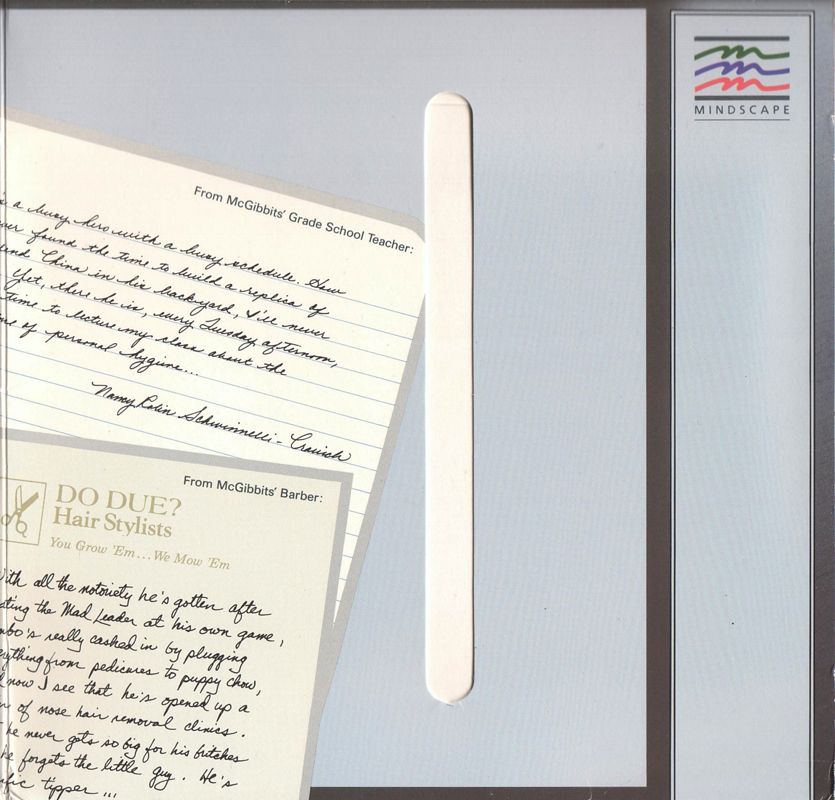 MINDSCAPE
From McGibbits' Grade School Teacher:
's a busy hero with a busy schedule. How
ver found the time to build a replica of
and China in his backyard, I'll never
Yet, there he is, every Tuesday afternoon,
time to lecture my class about the
of personal hygiene...
Nancy Schwinnelli-
From McGibbits' Barber:
DO DUE?
Hair Stylists
You Grow 'Em...We Mow 'Em
ith all the notoriety he's gotten after
ting the Mad Leader at his own game,
mbo's really cashed in by plugging
erything from pedicures to puppy chow,
now I see that he's opened up a
of nose hair removal clinics.
he never gets so big for his britches
he forgets the little guy. He's
ific tipper ...